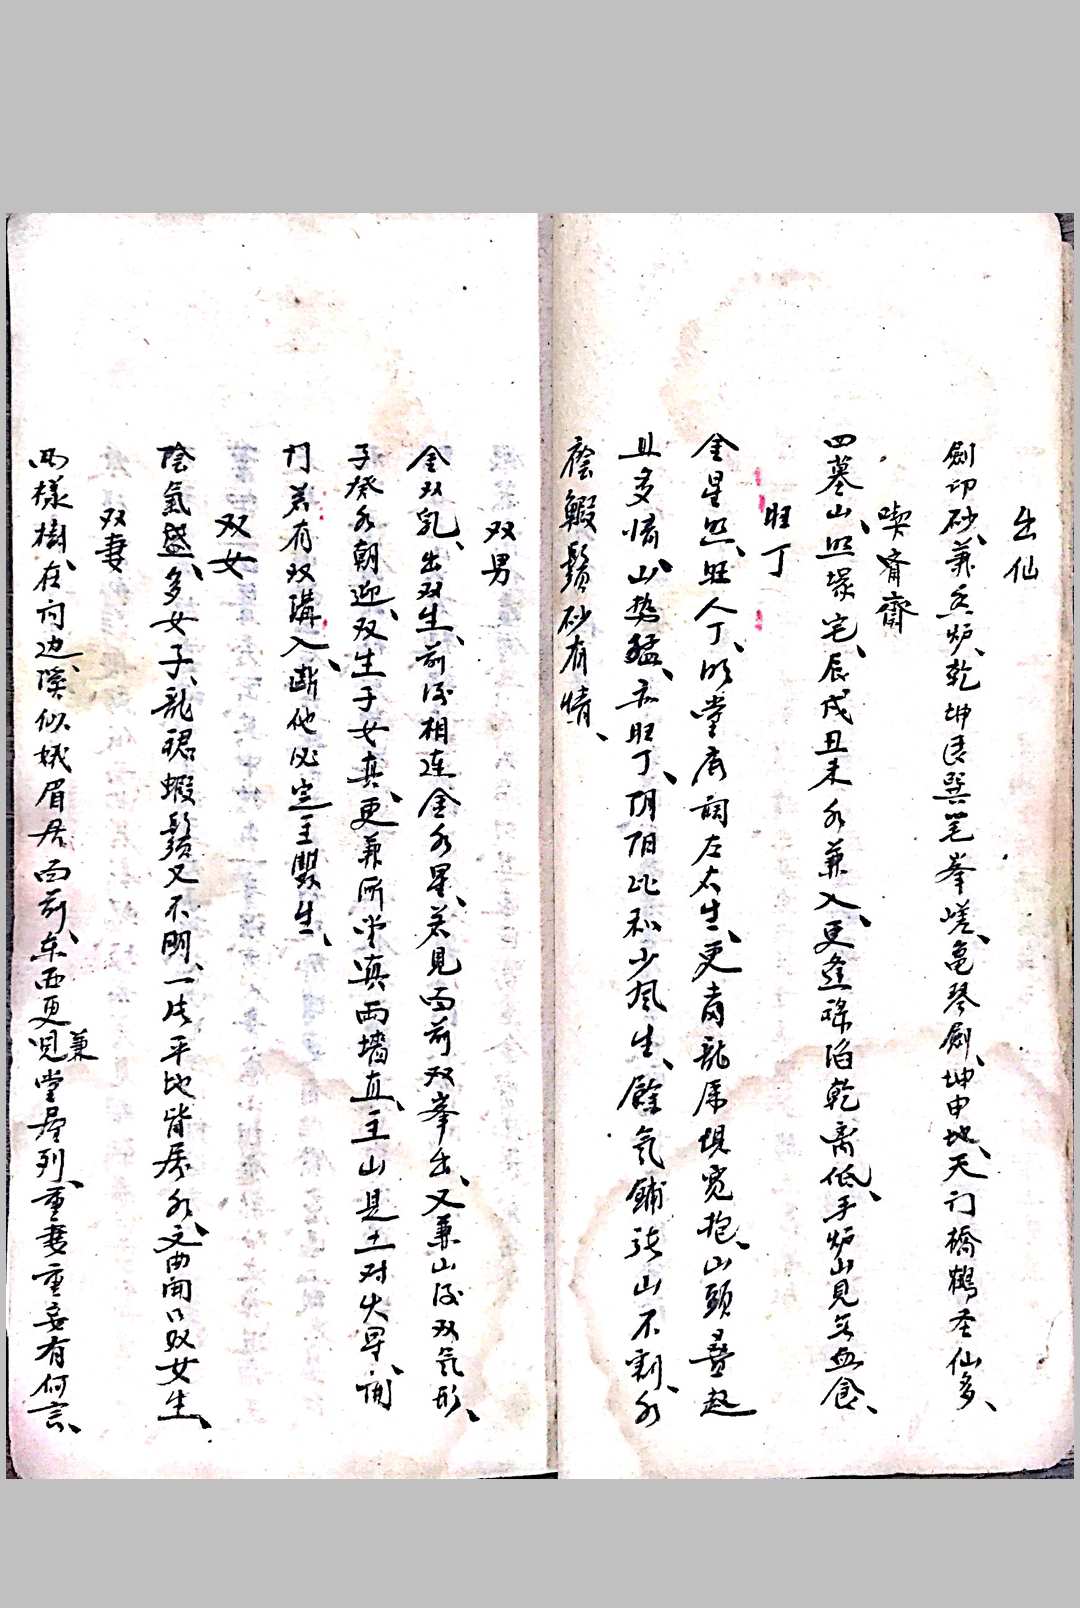 出仙
劍印砂、兼香炉、乾坤艮巽笔峯嵯、龟琴劍、坤申地、天门橋鶴圣仙多、
喫齋齋
四墓山、照塚宅、辰戌丑未水兼入、更逢碌陷乾离低、手炉山見無血食、
旺丁
金星照、旺人丁、明堂唇詞左太生、更青龍虎埧宽抱、山頭疊起
且多情、山势猛、亦旺丁、阴阳比和少年生、餘氣鋪張山不割、水
蔭鰕鬚砂有情、
双男
金双乳、出双生、前後相連金水星、若見面前双峯出、又兼山後双气形、
子癸水朝迎、双生子女真、更兼所坐真两墙直、主山是土对火星、两
门若有双溝入、断他必定主雙生、
双女
陰氣盛、多女子、龍穏蝦鬚又不明、一片平地皆居水、文曲闹口双女生、
双妻
两樣樹、在向边、溪似娥眉居面前、东西更兼見堂层列、重妻重妾有何言、